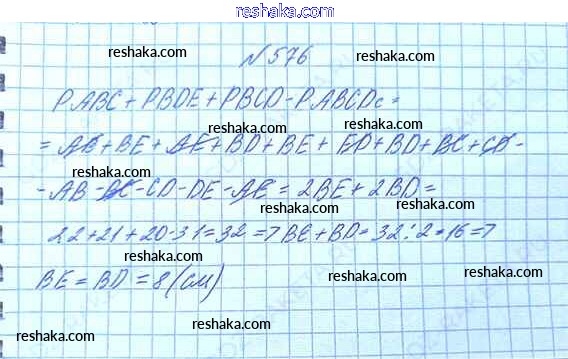 reshaka.com
reshaka.com
N 576
reshaka.com
PABC + PBDE + PBCD - PABCDc =
reshaka.com
= AB + BE + AE + BD + BE + ED + BD + BC + CD -
reshaka.com
reshaka.com
- AB - BC - CD - DE - AE = 2BE + 2BD =
reshaka.com
22 + 21 + 20 - 31 = 32 => BE + BD = 32 : 2 = 16 =>
reshaka.com
reshaka.com
BE = BD = 8 (см)
reshaka.com
reshaka.com
reshaka.com
reshaka.com
reshaka.com
reshaka.com